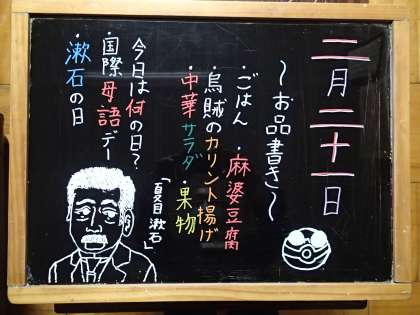 二月二十一日
～お品書き～
・ごはん ・麻婆豆腐
・烏賊のカリント揚げ
・中華サラダ ・果物
今日は何の日？
・国際母語デー
・漱石の日
「夏目漱石」